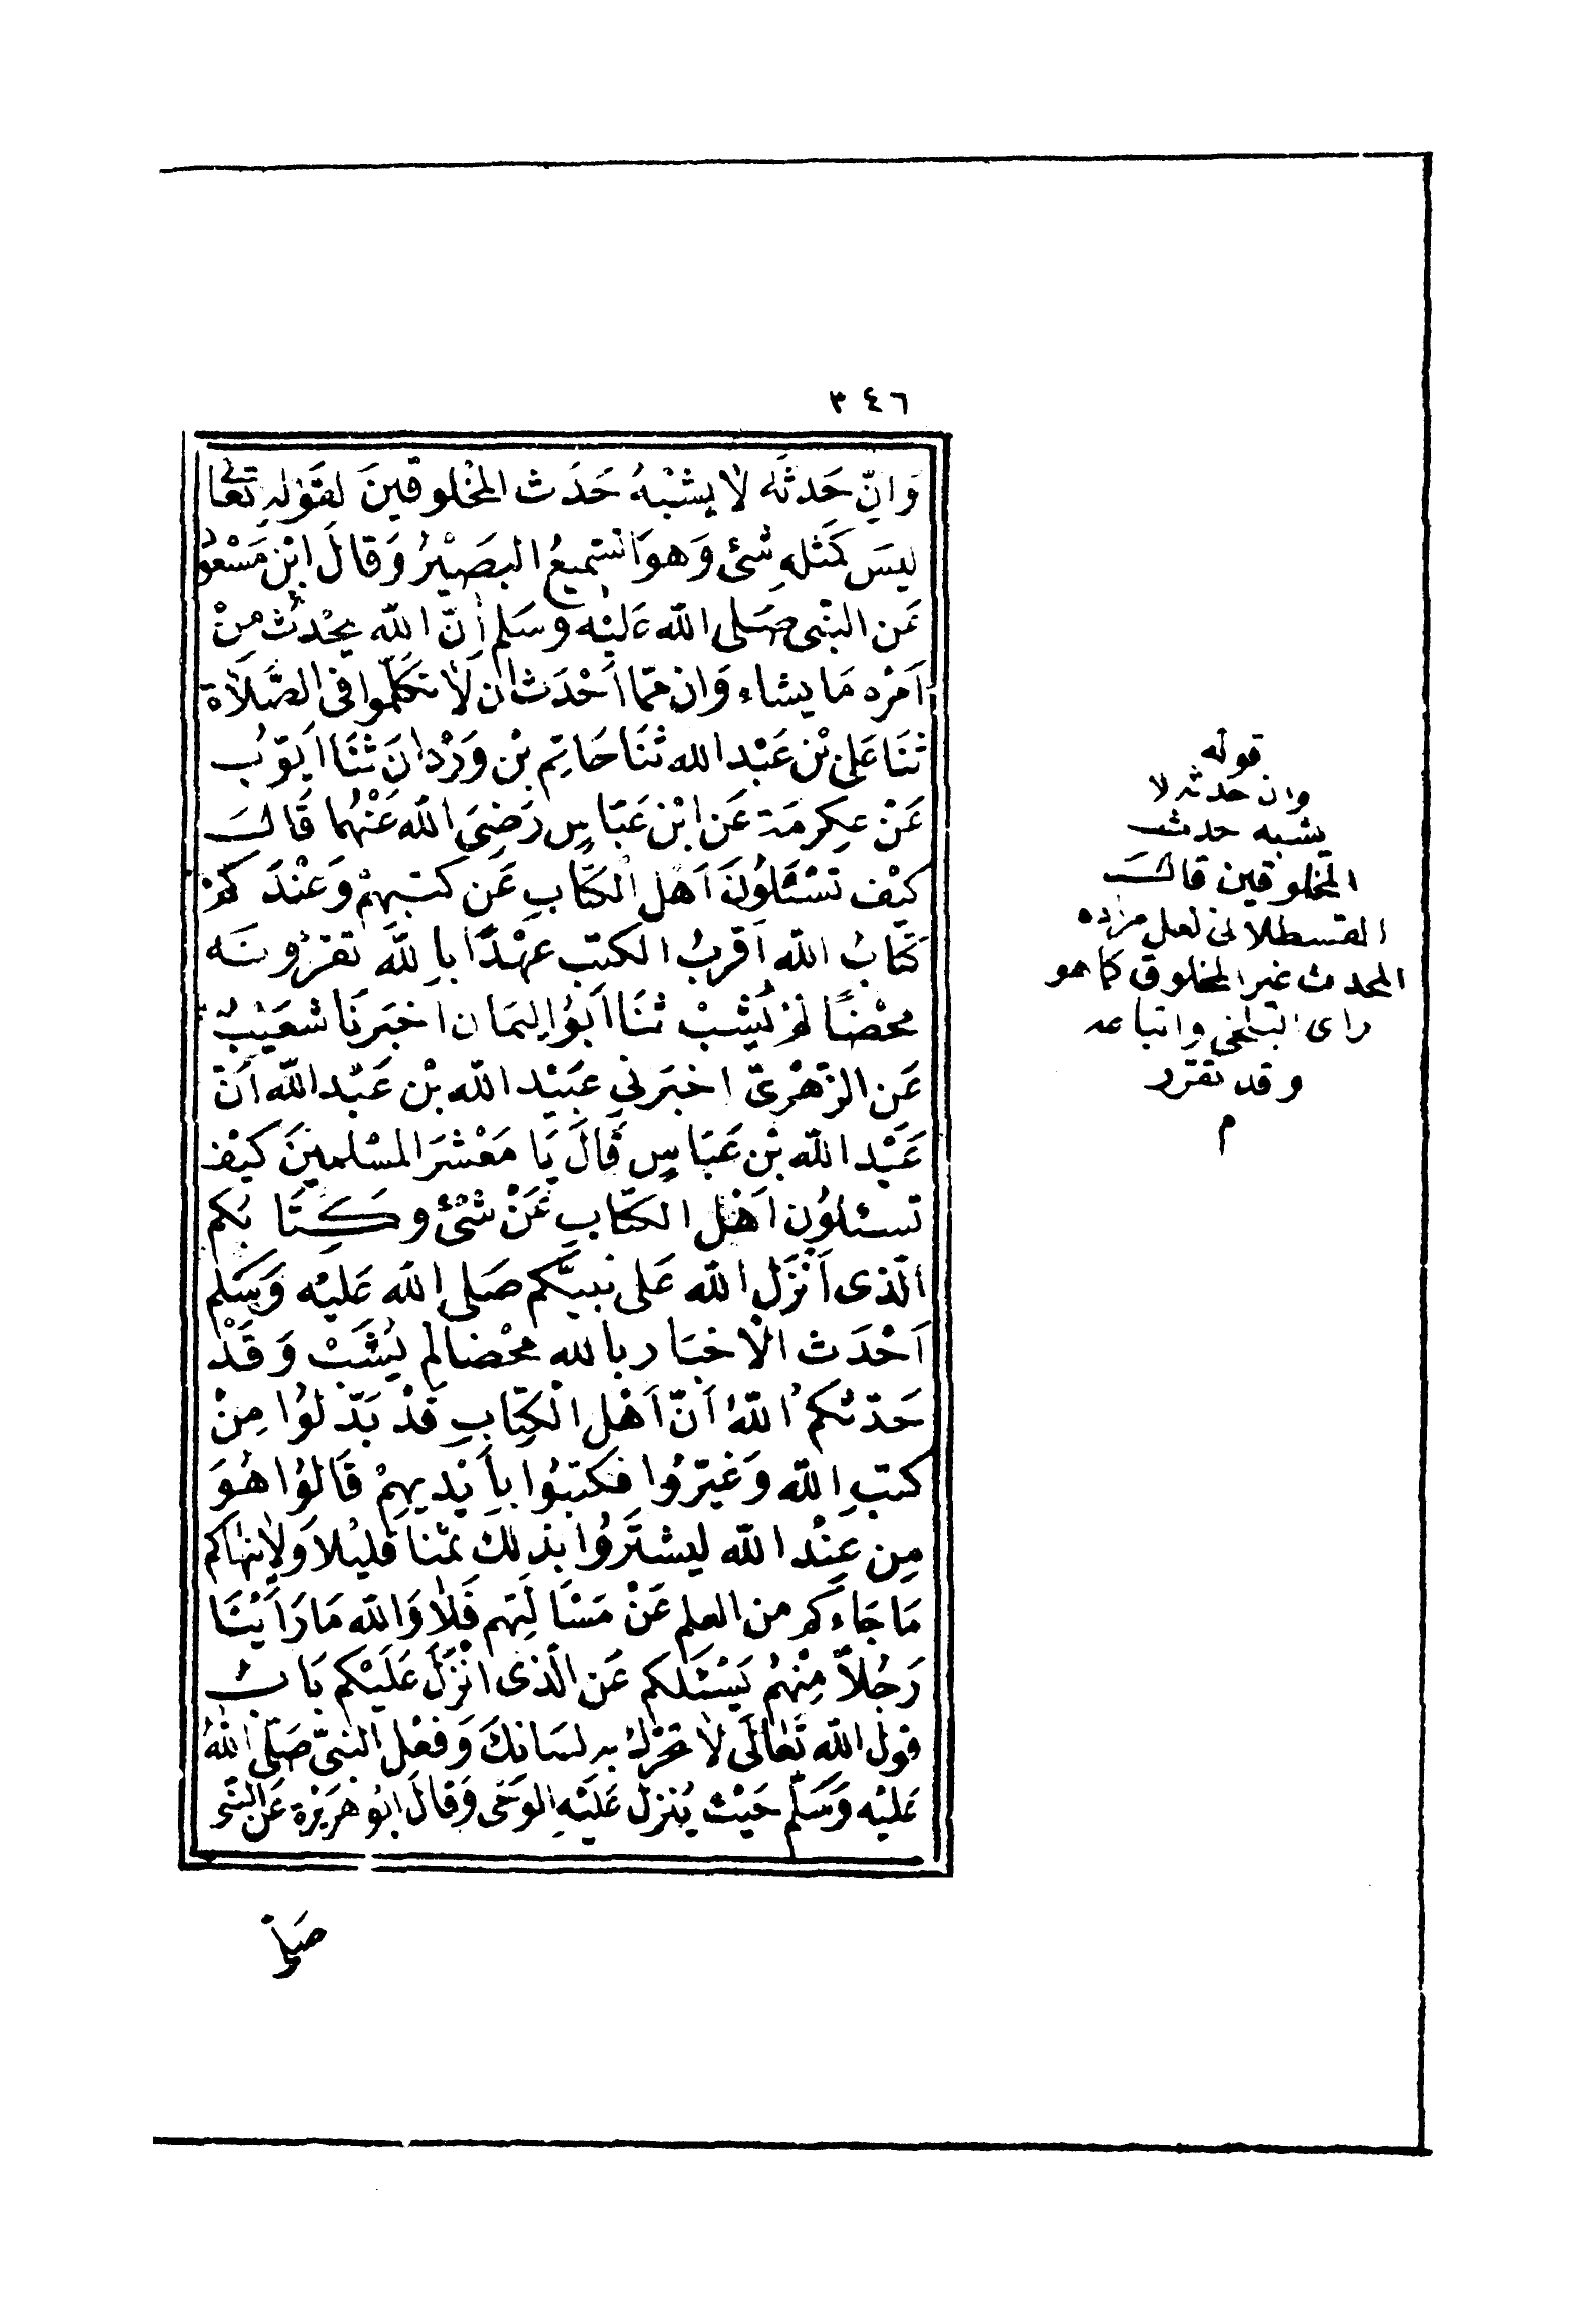 ٣٤٦
وَانّ حَدثَهُ لا يشْبهُ حَدَث المخْلوقينَ لقَوْلهِ تَعالى
ليسَ كمَثلهِ شئ وَهوَ السّميعُ البصَيْرُ وَقالَ ابْن مَسْعود
عَن النبّى صَلى الله عَليْه وسَلم إنّ الله يحْدثُ مِنْ
اَمْرْه مَا يشاء وَان ممّا اَحْدَث ان لا تكَلّموا فى الصَّلاة
ثنَا عَلى بْن عَبْد الله ثنَا حَاتِم بْن وَرْدانَ ثنَا ايّوبُ
عَنْ عِكرمَة عَن ابْن عَبّاسٍ رَضِىَ الله عَنْهُما قَالَ
كيْف تسْئلُونَ اَهْل الكتَاب عَن كتبهمْ وَعنْدَكمْ
كتَابُ الله اَقربُ الكتب عهْدًا بالله تقرؤنَه
محْضًا لمْ يُشبْ ثنَا اَبوُ اليمَان اخبَرنَا شعَيْبٌ
عَن الزّهْرىّ اخبَرنى عبَيْد الله بْن عَبْد الله اَنّ
عَبْد الله بْن عَبّاسٍ قَالَ يَا مَعْشرَ المسْلمينَ كيْف
تسئلوُن اَهْل الكتَابِ عَنْ شئ وكِتَابُكم
الّذى اَنْزَل الله عَلى نبيّكم صَلى الله عَليْه وَسَلم
اَحْدَث الاَخبَار بالله محْضا لم يُشَبْ وَقَدْ
حَدّثكمُ اللهُ اَنّ اَهْل الْكتَابِ قَدْ بَدّلوُا مِنْ
كتب الله وَغيّرُوا فكتبُوا باَيْديهِمْ قَالوُا هُوَ
مِن عِنْد الله ليشتَرُوا بذلكَ ثمنا قليْلا وَلا ينهاكم
مَا جَاءكم من العلم عَنْ مَسْاَلَتهم فَلا وَالله مَا رَاَيْنَا
رَجُلاً مِنْهُم يَسْئلكم عَن الّذى انْزَلَ عَلَيْكم بَابُ
قول الله تَعالَى لا تحرّك به لسَانكَ وَفعْل النبىّ صَلّى اللهُ
عَليْه وَسَلّم حَيْث يُنزل عَليْهِ الوَحى وَقالَ ابُو هرَيْرَة عَن النبّى
صَلى
قوله
وان حدثه لا
يشبه حدث
المخلوقين قالَ
القسطلانى لعل مراده
المحدث غير المخلوق كما هو
راى البلخى واتباعه
وقد تقرّر
م